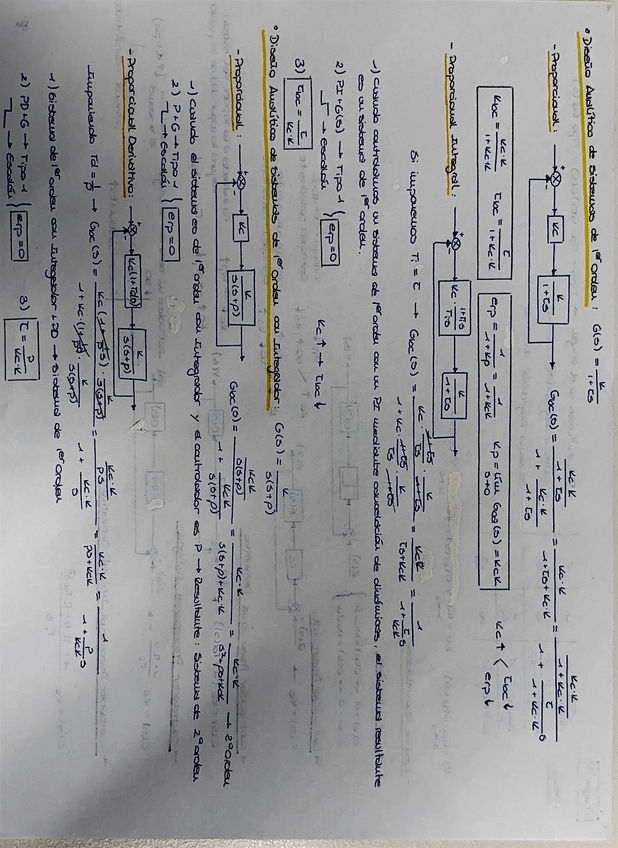 • Diseño Analítico de Sistemas de 1er orden: G(s) = K / (1+τs)
- Proporcional: + - Kc K/(1+τs) Gbc(s) = (Kc·K/(1+τs)) / (1 + Kc·K/(1+τs)) = Kc·K / (1+τs+Kc·K) = (Kc·K/(1+Kc·K)) / (1 + τ/(1+Kc·K) s)
Kbc = Kc·K / (1+Kc·K) τbc = τ / (1+Kc·K) erp = 1/(1+Kp) = 1/(1+KcK) Kp = lím s→0 Gba(s) = KcK Kc↑ < τbc↓ erp↓
- Proporcional Integral: + - Kc · (1+τis)/(τis) K/(1+τs)
Si imponemos τi = τ → Gbc(s) = (Kc (1+τs)/(τs) · K/(1+τs)) / (1 + Kc (1+τs)/(τs) · K/(1+τs)) = KcK / (τs+KcK) = 1 / (1 + τ/(KcK) s)
1) Cuando controlamos un sistema de 1er orden con un PI mediante cancelación de dinámicas, el sistema resultante
es un sistema de 1er orden.
2) PI+G(s) → Tipo 1 } erp=0
→ Escalón
3) τbc = τ / (Kc·K) Kc↑ → τbc↓
• Diseño Analítico de Sistemas de 1er orden con Integrador: G(s) = K / (s(s+p))
- Proporcional: + - Kc K/(s(s+p)) Gbc(s) = (KcK/(s(s+p))) / (1 + KcK/(s(s+p))) = Kc·K / (s(s+p)+Kc·K) = Kc·K / (s²+ps+KcK) → 2º orden
1) Cuando el sistema es de 1er orden con Integrador y el controlador es P → Resultante: Sistema de 2º orden
2) P+G → Tipo 1 } erp=0
→ Escalón
- Proporcional Derivativo: + Kc(1+Tds) K/(s(s+p))
Imponiendo Td = 1/p → Gbc(s) = (Kc(1+1/p s) · K/(s(s+p))) / (1+Kc·(1+1/p s) K/(s(s+p))) = (Kc·K/(ps)) / (1 + Kc·K/s) = Kc·K / (ps+KcK) = 1 / (1 + p/(KcK) s)
1) Sistema de 1er orden con Integrador + PD → Sistema de 1er orden
2) PD+G → Tipo 1 } erp=0
→ Escalón
3) τ = p / (Kc·K)